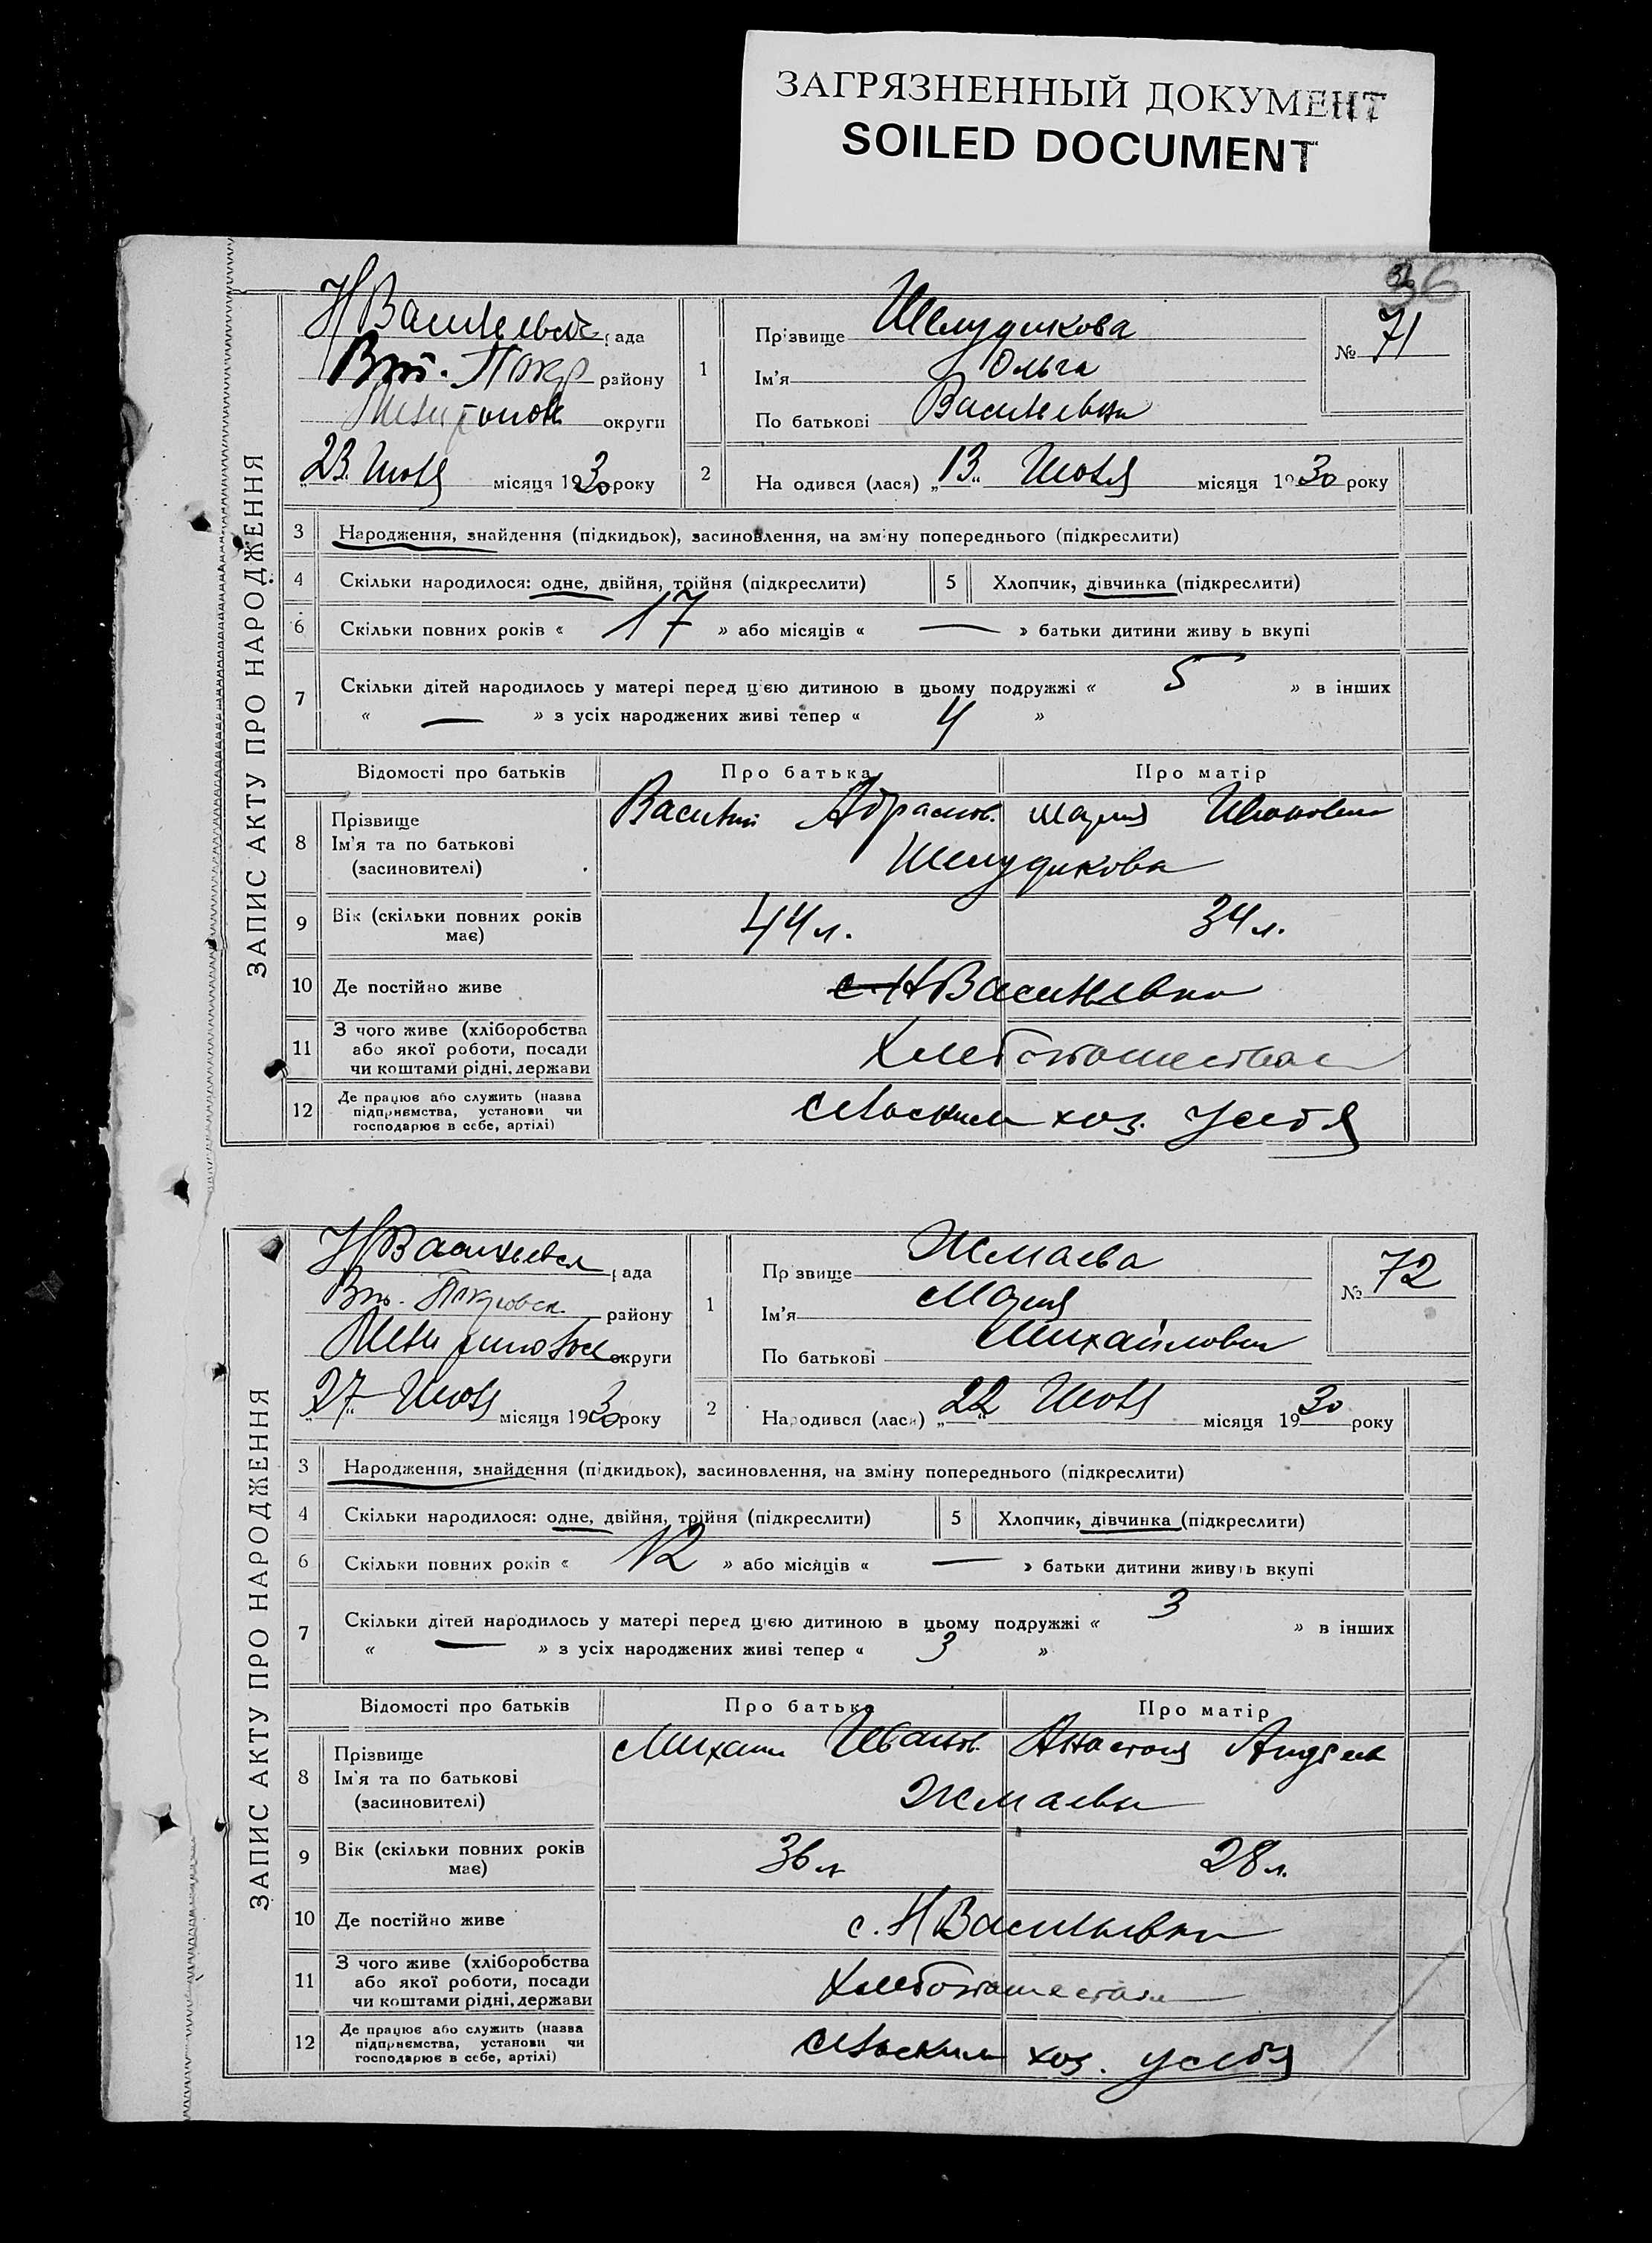 ЗАГРЯЗНЕННЫЙ ДОКУМЕНТ
SOILED DOCUMENT
36
ЗАПИС АКТУ ПРО НАРОДЖЕННЯ
Н Васильевск рада
Вт. Покр району
округи
23 Июля місяця 1930 року
1
Прізвище Шелудикова
Ім'я Ольга
По батькові Васильевна
№ 71
2
На одився (лася) „13“ Июля місяця 1930 року
3 Народження, знайдення (підкидьок), засиновлення, на зміну попереднього (підкреслити)
4 Скільки народилося: одне, двійня, трійня (підкреслити) 5 Хлопчик, дівчинка (підкреслити)
6 Скільки повних років « 17 » або місяців « — » батьки дитини живу ь вкупі
7 Скільки дітей народилось у матері перед цією дитиною в цьому подружжі « 5 » в інших
« — » з усіх народжених живі тепер « 4 »
Відомості про батьків Про батька Про матір
8 Прізвище Ім'я та по батькові (засиновителі)
Василий Абрамов. Мария Ивановна
Шелудикова
9 Вік (скільки повних років має) 44 л. 34 л.
10 Де постійно живе с. Н Васильевка
11 З чого живе (хліборобства або якої роботи, посади чи коштами рідні, держави
12 Де працює або служить (назва підприємства, установи чи господарює в себе, артілі)
сельским хоз. у себя
ЗАПИС АКТУ ПРО НАРОДЖЕННЯ
Н Васильевск рада
Вт. Покровск. району
округи
27 Июля місяця 1930 року
1
Пр звище Жмаева
Ім'я Мария
По батькові Михайловна
№ 72
2
Народився (лася) „22“ Июля місяця 1930 року
3 Народження, знайдення (підкидьок), засиновлення, на зміну попереднього (підкреслити)
4 Скільки народилося: одне, двійня, трійня (підкреслити) 5 Хлопчик, дівчинка (підкреслити)
6 Скільки повних років « 12 » або місяців « — » батьки дитини живуть вкупі
7 Скільки дітей народилось у матері перед цією дитиною в цьому подружжі « 3 » в інших
« — » з усіх народжених живі тепер « 3 »
Відомості про батьків Про батька Про матір
8 Прізвище Ім'я та по батькові (засиновителі)
Михаил Иванов. Анастасия Андреев
Жмаевы
9 Вік (скільки повних років має) 36 л 28 л.
10 Де постійно живе с. Н Васильевка
11 З чого живе (хліборобства або якої роботи, посади чи коштами рідні, держави
12 Де працює або служить (назва підприємства, установи чи господарює в себе, артілі)
сельским хоз. у себя